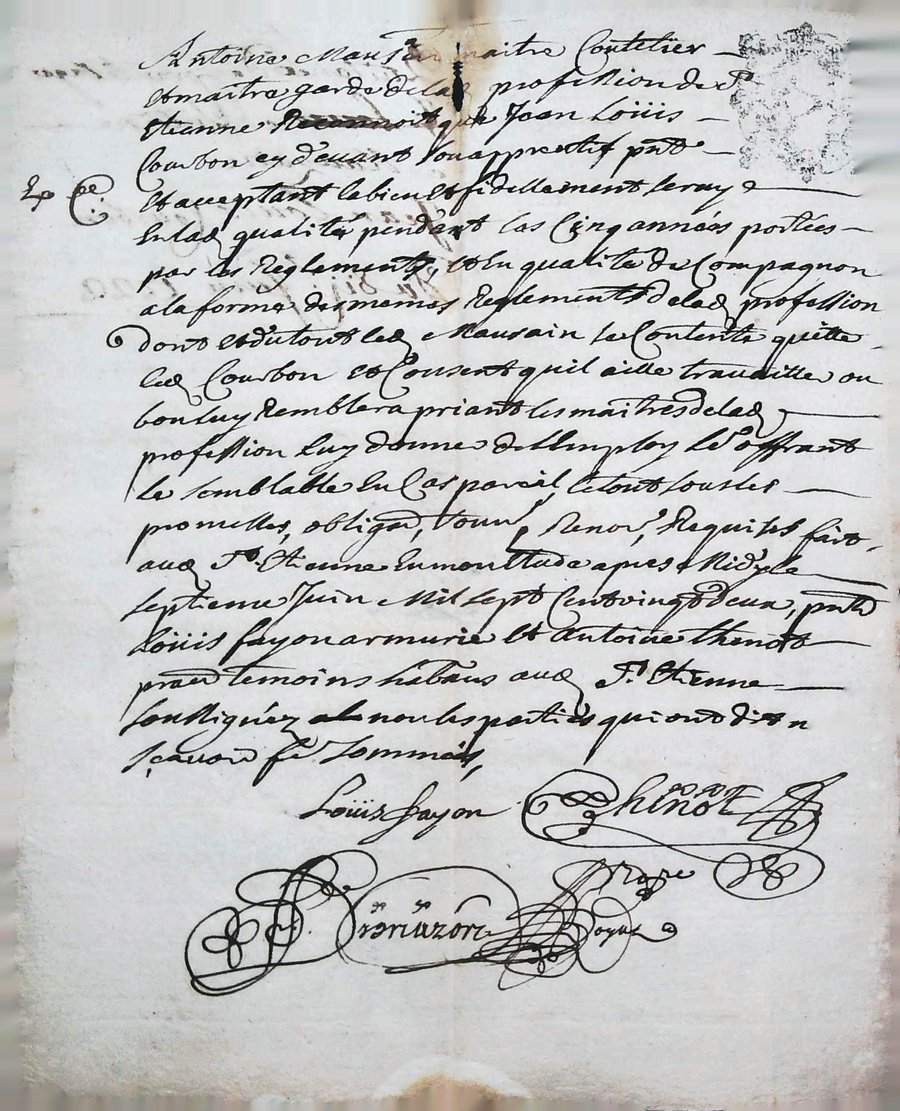 Antoine Mausain maitre Coutelier
et maitre garde de lad profession de St
Etienne Reconnoit que Jean Loüis
Courbon cy devant son apprentif pnt
Ex Ce
et acceptant la bien et fidellement servy
En lad qualité pendant les Cinq années portées
par les Reglements, et En qualité de Compagnon
a la forme des memes Reglements de lad profession
dont et du tout led Mausain se Contente quitte
led Courbon et Consent quil aille travaille ou
bon luy semblera priant les maitres de lad
profession luy donne de l'Employ Les offrant
le semblable En Cas pareil, le tout sous les
promesses, obligaõ, soum, Renon, Requises fait
aud St Etienne apres Midy le
septieme Juin Mil sept Cent vingt deux, pnts
Loüis fayon armurie et Antoine thenot
pratn temoins habitans aud St Etienne
soussignéz non les parties qui ont dit n
sçavoir fe sommés,
Loüis fayon Thenot